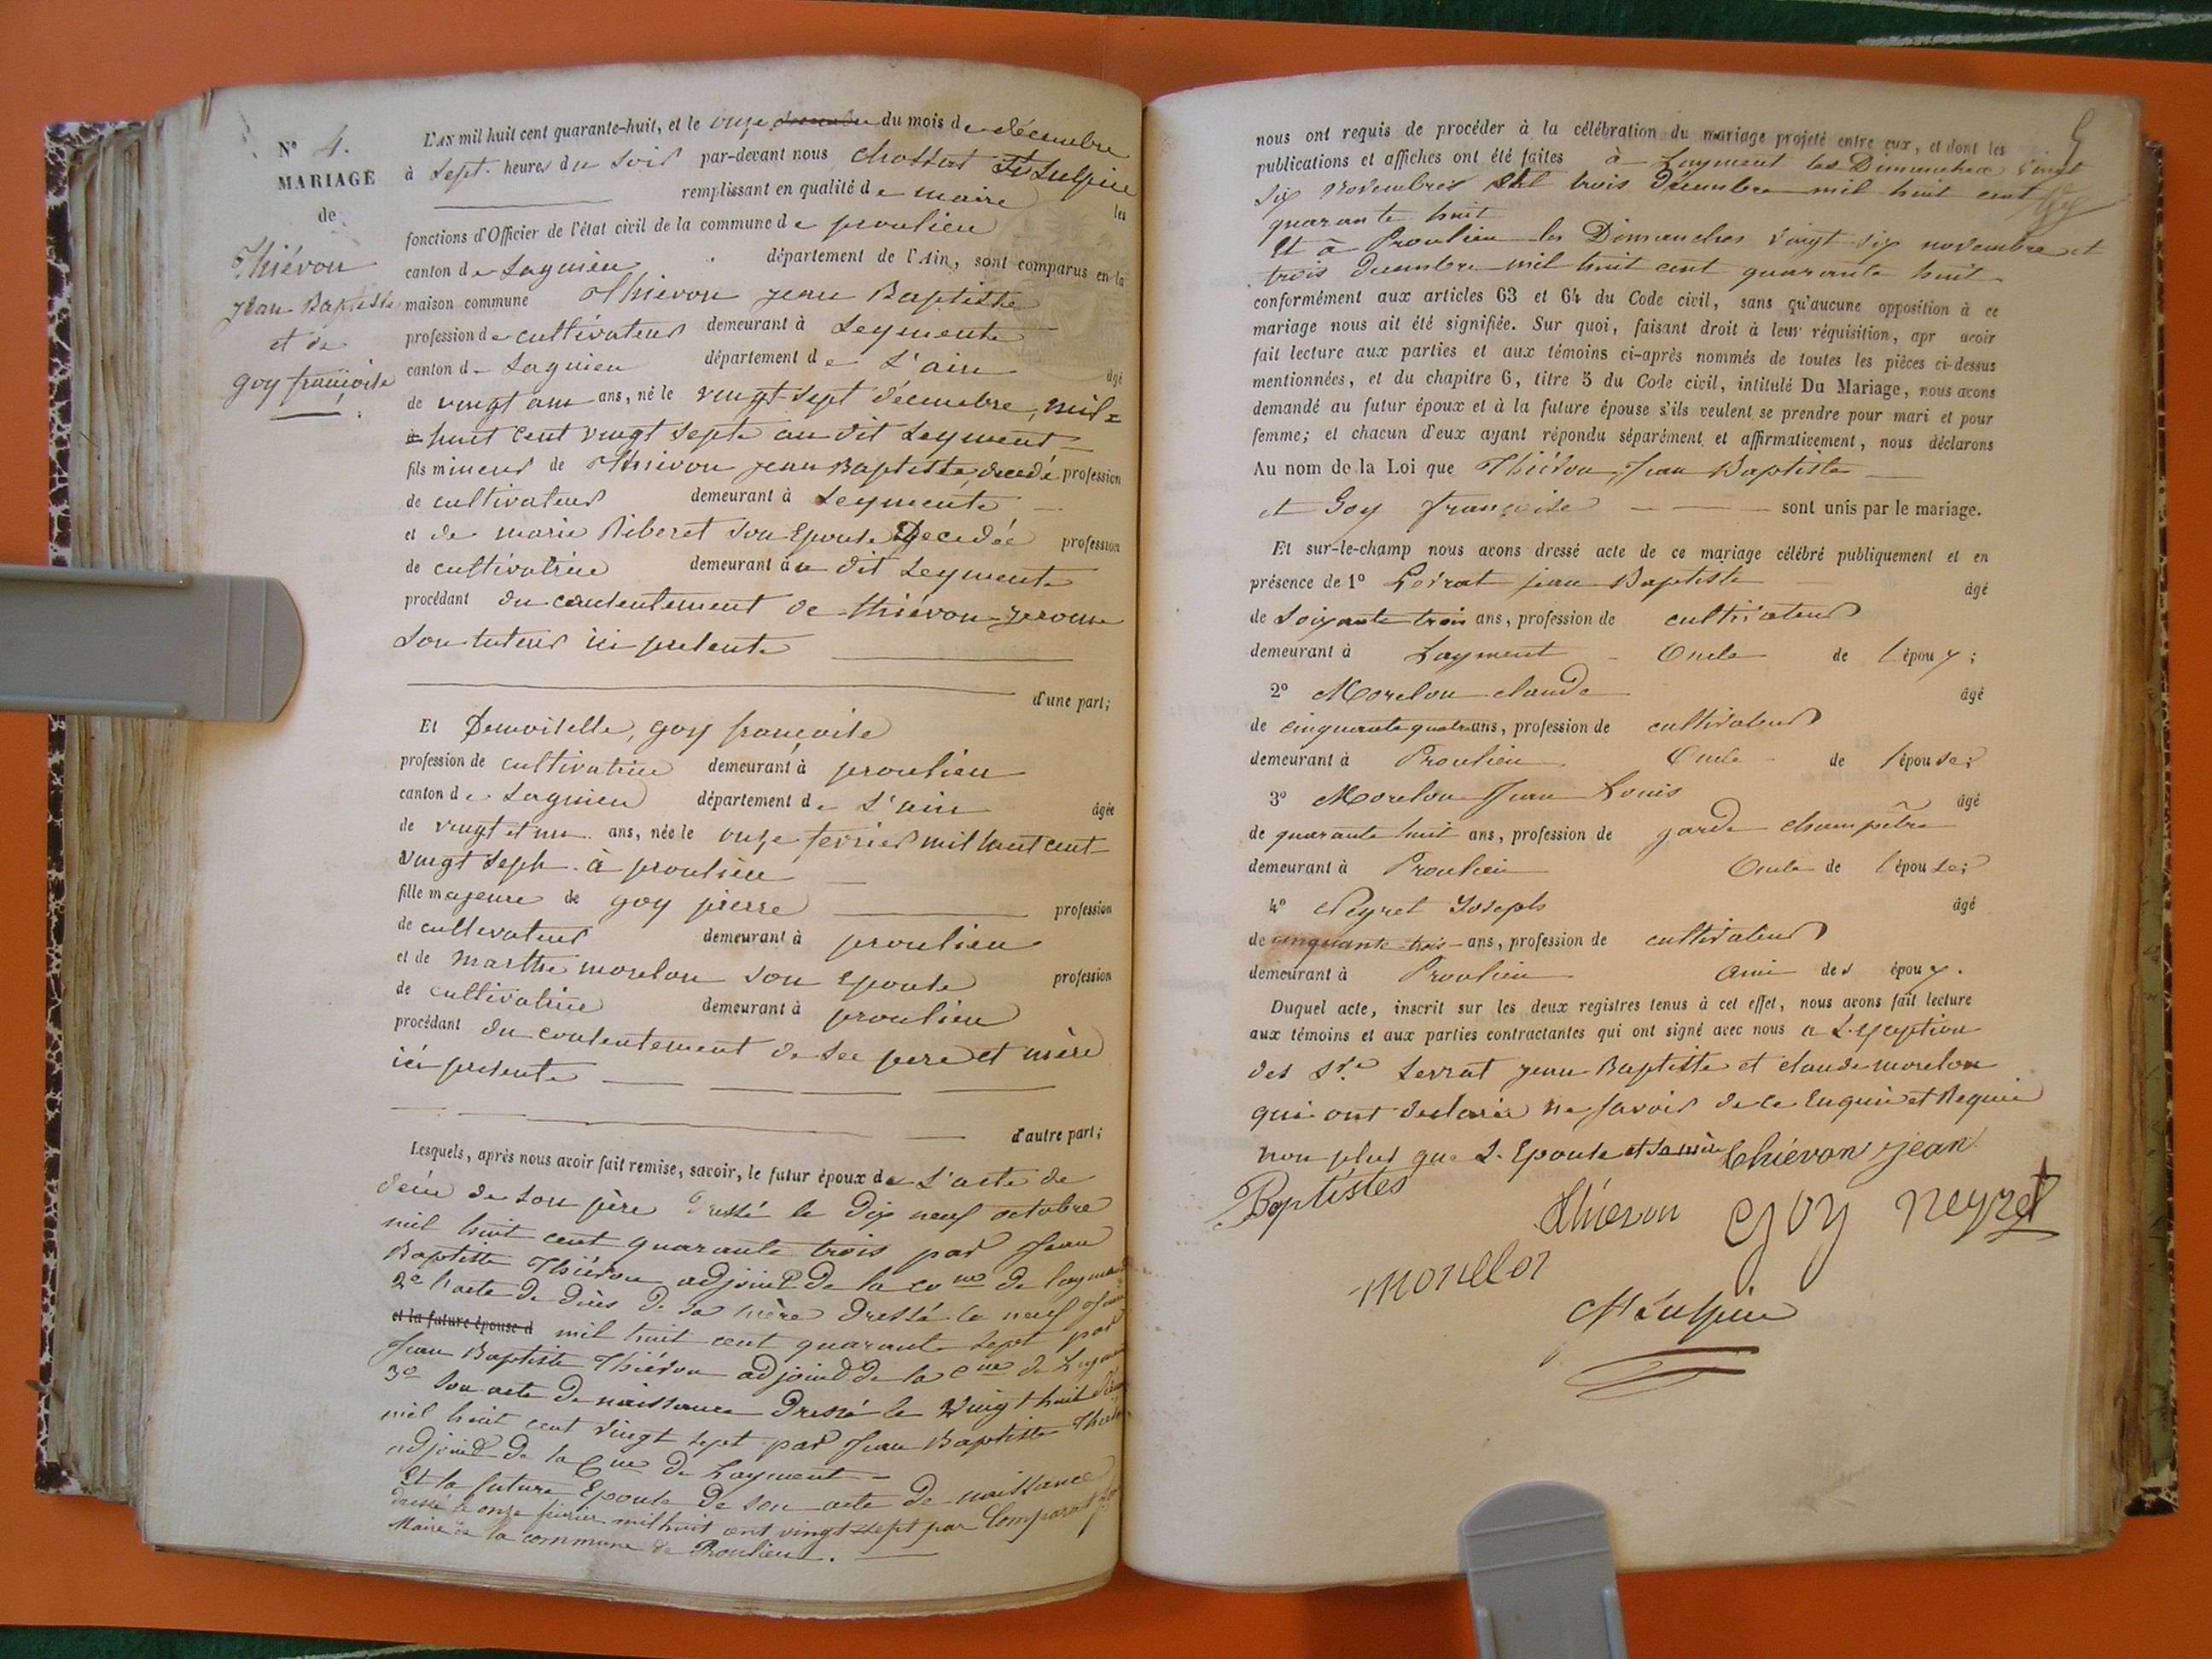 N° 4.
MARIAGE
de
Thiévon
Jean Baptiste
et de
goy françoise
L'AN mil huit cent quarante-huit, et le onze décembre du mois de décembre
à sept heures du soir par-devant nous chossat St Sulpice
remplissant en qualité de maire les
fonctions d'Officier de l'état civil de la commune de proulieu
canton de Lagnieu département de l'Ain, sont comparus en la
maison commune Thievon jean Baptiste
profession de cultivateur demeurant à Leymente
canton de Lagnieu département de L'ain âgé
de vingt ans ans, né le vingt-sept décembre, mil=
=huit cent vingt septe au dit Leyment
fils mineur de Thievon jean Baptiste, decedé profession
de cultivateur demeurant à Leymente
et de marie Riberet son Epouse Decedée profession
de cultivatrice demeurant au dit Leymente
procédant du consentement de thiévon jerome
son tuteur ici presente
d'une part;
Et Demoiselle, goy françoise
profession de cultivatrice demeurant à proulieu
canton de Lagnieu département de L'ain âgée
de vingt et un ans, née le onze fevrier mil huit cent
vingt sept à proulieu
fille majeure de goy pierre profession
de cultivateur demeurant à proulieu
et de marthe morelon son Epouse profession
de cultivatrice demeurant à proulieu
procédant du consentement de ses pere et mère
ici presente
d'autre part;
Lesquels, après nous avoir fait remise, savoir, le futur époux de L'acte de
décès de son père Dressé le Dix neuf octobre
mil huit cent quarante trois par Jean
Baptiste Thiévon adjoint de la cone de layment
2e l'acte de décès de sa mère Dressé le neuf
et la future épouse d mil huit cent quarante sept par
Jean Baptiste Thiévon adjoind de la Cne de
3e Son acte de naissance Dressé le Vingt huit
mil huit cent vingt sept par Jean Baptiste
adjoint de la Cne de Layment
Et la future Epouse de son acte de naissance
dressé le onze fevrier mil huit cent vingt-sept par Comparat
Maire de la commune de Proulieu.
5
nous ont requis de procéder à la célébration du mariage projeté entre eux, et dont les
publications et affiches ont été faites à Layment les Dimanches vingt
six Novembres Et trois Décembre mil huit cent
quarante huit
Et à Proulieu les Dimanches vingt six novembre et
trois decembre mil huit cent quarante huit
conformément aux articles 63 et 64 du Code civil, sans qu'aucune opposition à ce
mariage nous ait été signifiée. Sur quoi, faisant droit à leur réquisition, apr avoir
fait lecture aux parties et aux témoins ci-après nommés de toutes les pièces ci-dessus
mentionnées, et du chapitre 6, titre 5 du Code civil, intitulé Du Mariage, nous avons
demandé au futur époux et à la future épouse s'ils veulent se prendre pour mari et pour
femme; et chacun d'eux ayant répondu séparément et affirmativement, nous déclarons
Au nom de la Loi que Thiévon, Jean Baptiste
et Goy françoise sont unis par le mariage.
Et sur-le-champ nous avons dressé acte de ce mariage célébré publiquement et en
présence de 1° Levrat jean Baptiste âgé
de Soixante trois ans, profession de cultivateur
demeurant à Layment Oncle de l'époux;
2° Morelon claude âgé
de cinquante quatre ans, profession de cultivateur
demeurant à Proulieu Oncle de l'épouse;
3° Morelon Jean Louis âgé
de quarante huit ans, profession de garde champêtre
demeurant à Proulieu Oncle de l'épouse;
4° Neyret Joseph âgé
de cinquante-trois ans, profession de cultivateur
demeurant à Proulieu ami des époux.
Duquel acte, inscrit sur les deux registres tenus à cet effet, nous avons fait lecture
aux témoins et aux parties contractantes qui ont signé avec nous a L'exception
des Srs Levrat jean Baptiste et claude morelon
qui ont declaré ne savoir de ce Enquis et Requis
non plus que L'Epouse et sa mère Thiévon jean
Baptistes
Thievon goy neyret
morellon
St Sulpice